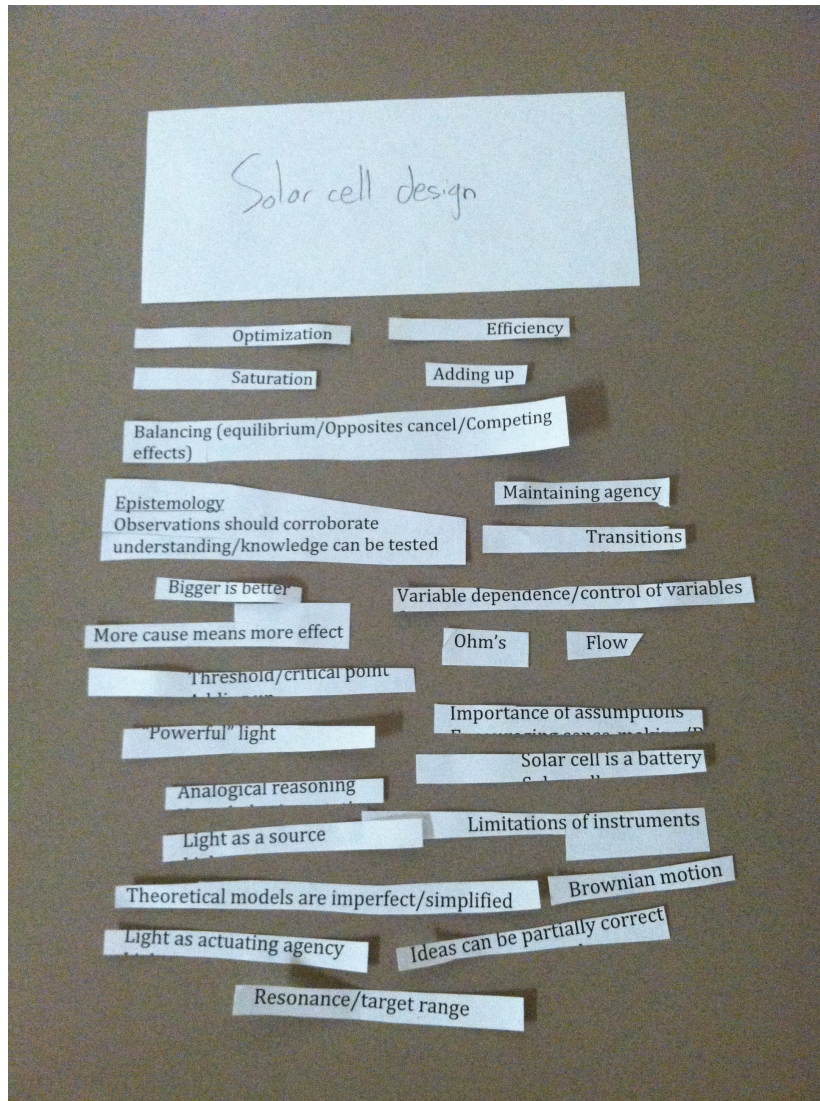 Solar cell design
Optimization
Efficiency
Saturation
Adding up
Balancing (equilibrium/Opposites cancel/Competing
effects)
Epistemology
Observations should corroborate
understanding/knowledge can be tested
Maintaining agency
Transitions
Bigger is better
Variable dependence/control of variables
More cause means more effect
Ohm's
Flow
Threshold/critical point
Importance of assumptions
"Powerful" light
Solar cell is a battery
Analogical reasoning
Limitations of instruments
Light as a source
Theoretical models are imperfect/simplified
Brownian motion
Light as actuating agency
Ideas can be partially correct
Resonance/target range